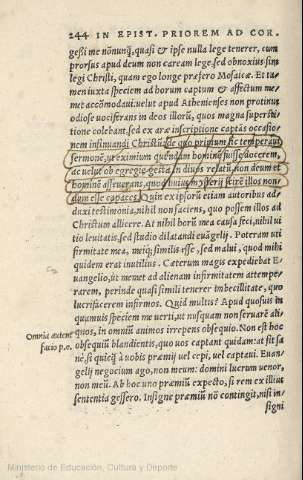 244 IN EPIST. PRIOREM AD COR.
gessi me nõnunq̃, quasi & ipse nulla lege tenerer, cum
prorsus apud deum non essem lege, sed obnoxius sim
legi Christi, quam ego longe præfero Mosaicæ. Et ta-
men iuxta speciem ad horum captum & affectum me-
met accõmodaui: uelut apud Athenienses non protinus
odiose uociferans in deos illorũ, quos magna supersti-
tione colebant, sed ex aræ inscriptione captãs occasio-
nem insinuandi Christũ, de quo primum sic temperaui
sermonẽ, ut eximium quendam hominẽ fuisse docerem,
ac uelut ob egregie gesta in diuos relatũ, non deum et
hominẽ asseuerans, quod huius mysterij scirẽ illos non-
dum esse capaces. Quin ex ipsorũ etiam autorib9 ad-
duxi testimonia, nihil non faciens, quo possem illos ad
Christum allicere. At nihil horũ mea causa feci, nihil ui
tio leuitatis, sed studio dilatandi euãgelij. Poteram uti
firmitate mea, meiq́; similis esse, sed malui, quod mihi
quidem erat inutilius. Cæterum magis expediebat E-
uangelio, ut memet ad alienam infirmitatem attempe-
rarem, perinde quasi simili tenerer imbecillitate, quo
lucrifacerem infirmos. Quid multis? Apud quosuis in
quamuis speciem me uerti, ut nusquam non seruarẽ ali-
quos, in omniũ animos irrepens obsequio. Non est hoc
Omnia autem
facio p.o.
obsequiũ blandientis, quo uos captant quidam: at sit sa
nè, si quicq̃ à uobis præmij uel cepi, uel captaui. Euan-
gelij negocium ago, non meum: domini lucrum uenor,
non meũ. Ab hoc uno præmiũ expecto, si rem ex illius
sententia gessero. Insigne præmiũ nõ contingit, nisi in-
signi
Ministerio de Educación, Cultura y Deporte